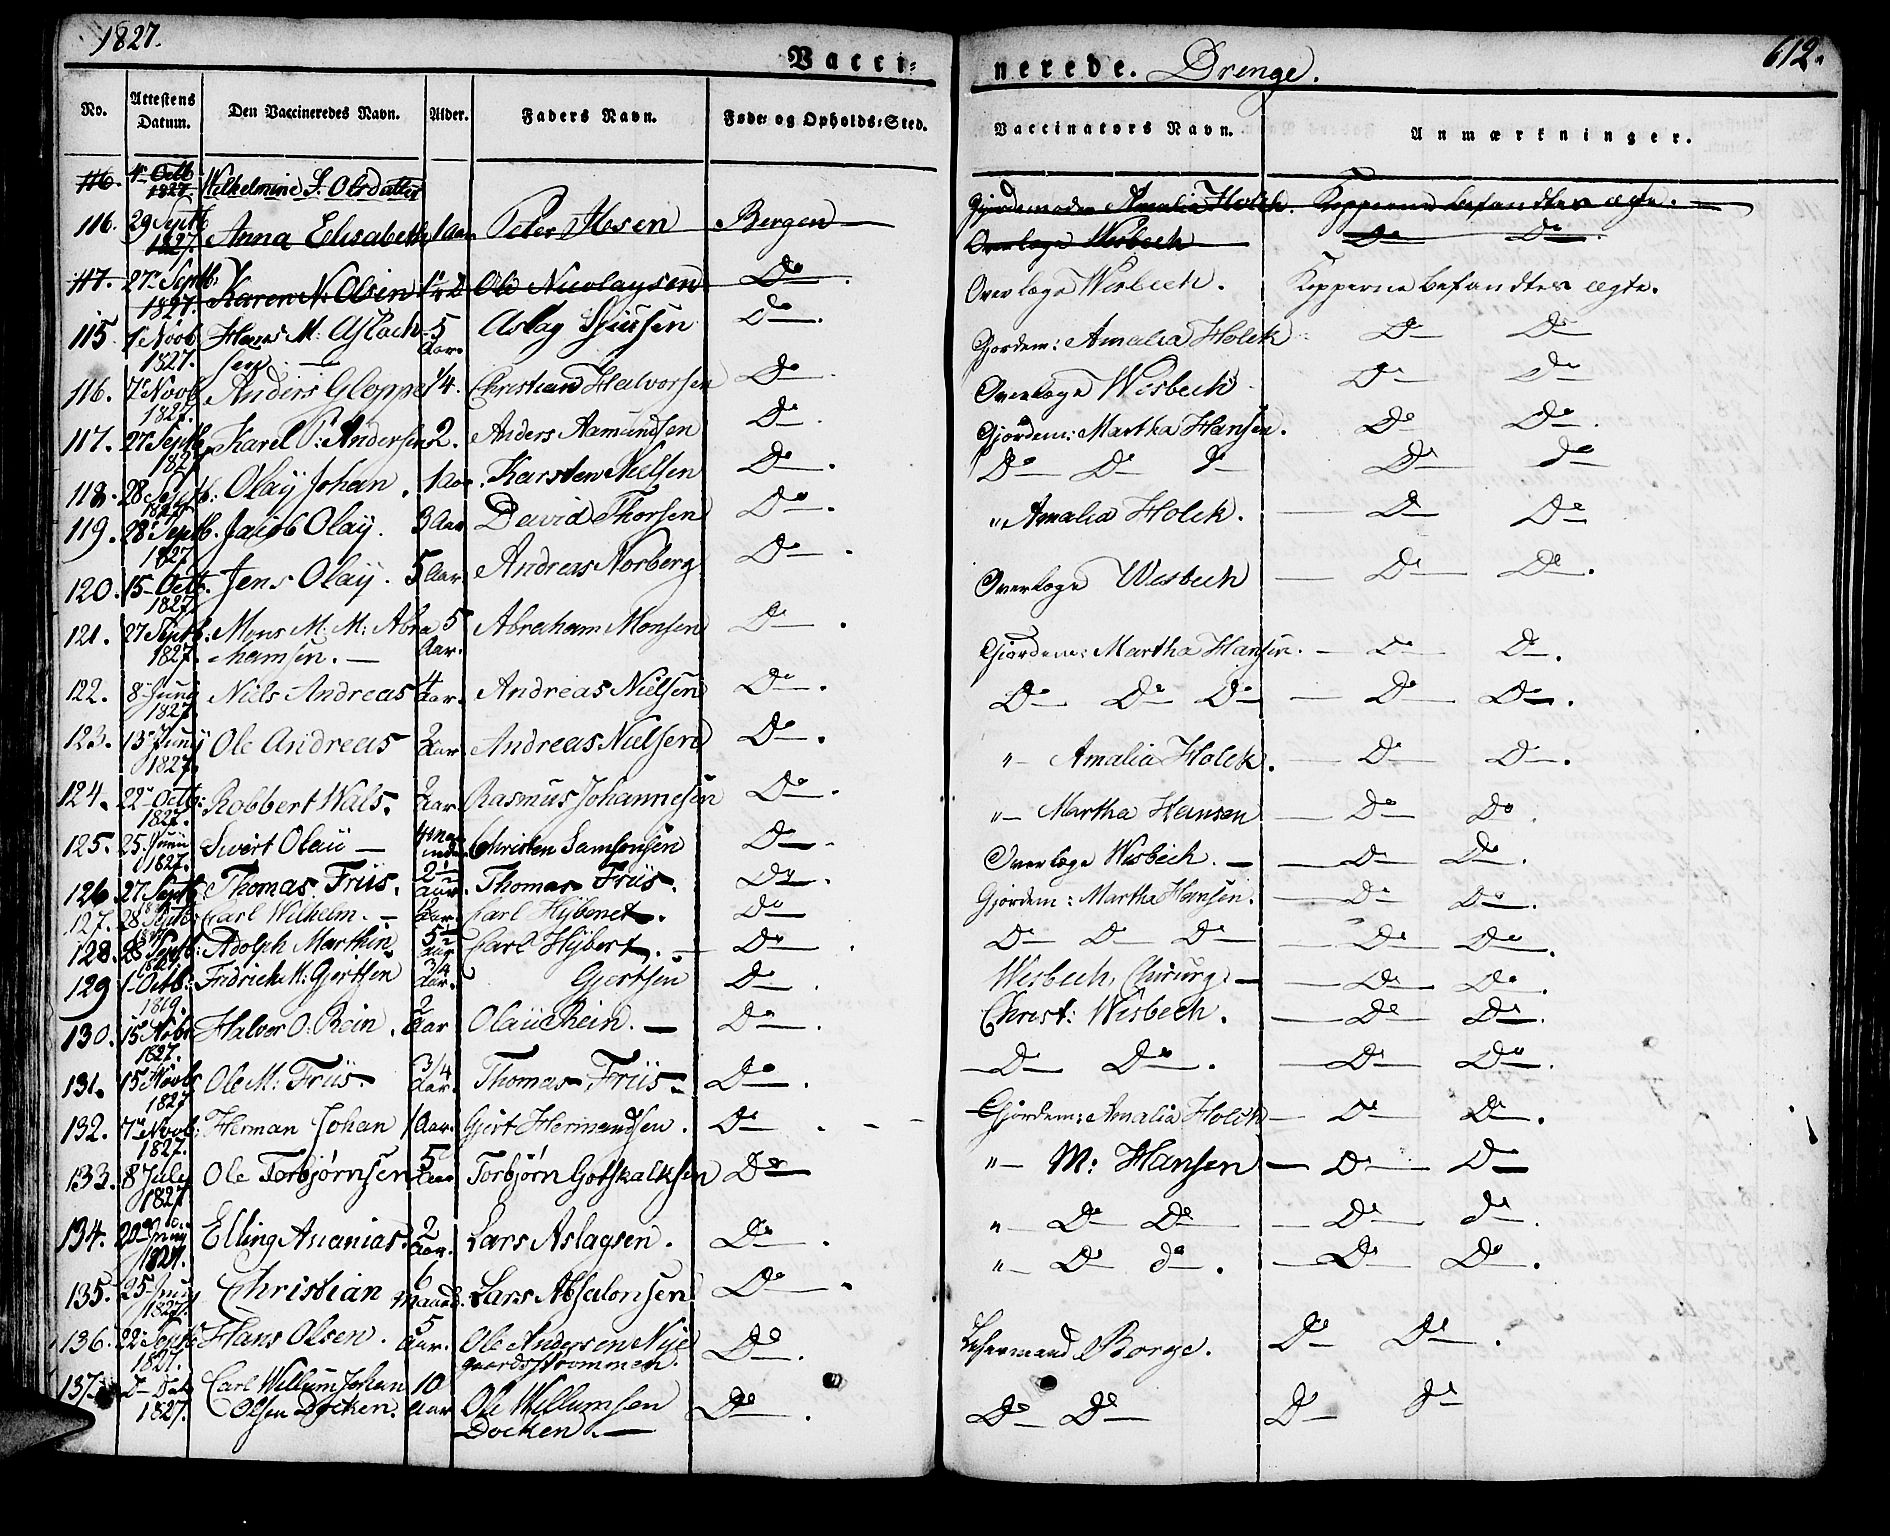 1827.
Vacci=
nerede. Drenge.
612.
No. Attestens Datum. Den Vaccineredes Navn. Alder. Faders Navn. Føde= og Opholds=Sted. Vaccinators Navn. Anmærkninger.
116. 4 Octb 1827. Wilhelmine S. Olsdatter Gjordemoder Amalia Holck. Kopperne befandtes ægte.
116. 29 Septb 1827. Anna Elisabeth 1 Aar Peter Ibsen Bergen Overlæge Wisbech Do Do
117. 27 Septb: 1827. Karen N. Olsen Ole Nicolaysen Do Overlæge Wisbech. Kopperne befandtes ægte.
115. 1 Novb 1827. Hans M: Aslach sen 5 Aar. Aslag Do Gjordem: Amalia Holck Do Do
116. 7 Novb 1827. Anders Gloppe 1/4. Christian Halvorsen Do Overlæge Wisbech Do Do
117. 27 Septb 1827 Karel P: Andersen 2. Anders Aamundsen Do Gjordem: Martha Hansen. Do Do
118. 28 Septb: 1827 Olay Johan. 1 Aar. Karsten Nielsen Do Do Do Do Do do
119. 28 Septb. 1827 Jacob Olay. 3 Aar David Thorsen Do " Amalia Holck. Do Do
120. 15 Octb. 1827. Jens Olay. 5 Aar. Andreas Norberg Do Overlæge Wisbech Do Do.
121. 27 Septb: 1827. Mons M: M: Abra hamsen. 5 Aar. Abraham Monsen Do Gjordem: Martha Hansen. Do Do.
122. 8 Juny 1827. Niels Andreas 4 Aar. Andreas Nielsen Do. Do Do Do Do Do.
123. 13 Juny 1827. Ole Andreas 2 Aar. Andreas Nielsen Do. " Amalia Holck. Do Do.
124. 22 Octb: 1827. Robbert Wals. 2 Aar. Rasmus Johannesen Do. " Martha Hansen Do Do.
125. 25. Juni 1827. Sivert Olau 4 Maa neder Christen Samsonsen Do Overlæge Wisbech. Do Do.
126. 27 Septb Thomas Friis. 2 Aar. Thomas Friis. Do. Gjordem: Martha Hansen. Do Do.
127. 28 Septb Carl Wilhelm. Aar. Carl Hybenet. Do Do Do Do Do Do.
128. 28 Septb: 1827. Adolph Marthin 5 Aar Carl Hybert. Do Wisbech, Chirurg. Do Do
129 1 Octb: 1819. Fridrich M: Gjertsen 3/4 Aar. Gjertsen Do. Christ: Wisbech. Do Do.
130. 15 Nobr 1827. Halvor O: Rein. 2 Aar Olau Rein. Do. Do Do. Do Do.
131. 15 Novb 1827 Ole M: Friis. 3/4 Aar. Thomas Friis. Do. Gjordem: Amalia Holck Do Do.
132. 7 Novb: 1827. Herman Johan 1 Aar. Gjert Hermandsen. Do. " M: Hansen Do Do
133. 8 July 1827 Ole Torbjørnsen 5 Aar Torbjørn Gotskalksen Do " Do Do Do do.
134. 20 Juny 1827. Elling Ananias 2 Aar. Lars Aslagsen. Do. " Do do. Do Do.
135. 25 Juny 1827. Christian 6 Maaned. Lars Absalonsen Do.
136. 22 Septb 1827. Hans Olsen. 5 Aar. Ole Andersen Nye gaardsstrommen. Do. Borge. Do Do.
137 1827. Carl Willum Johan Olsen Docken. 10 Aar Ole Willumsen Docken. Do. Do Do Do do